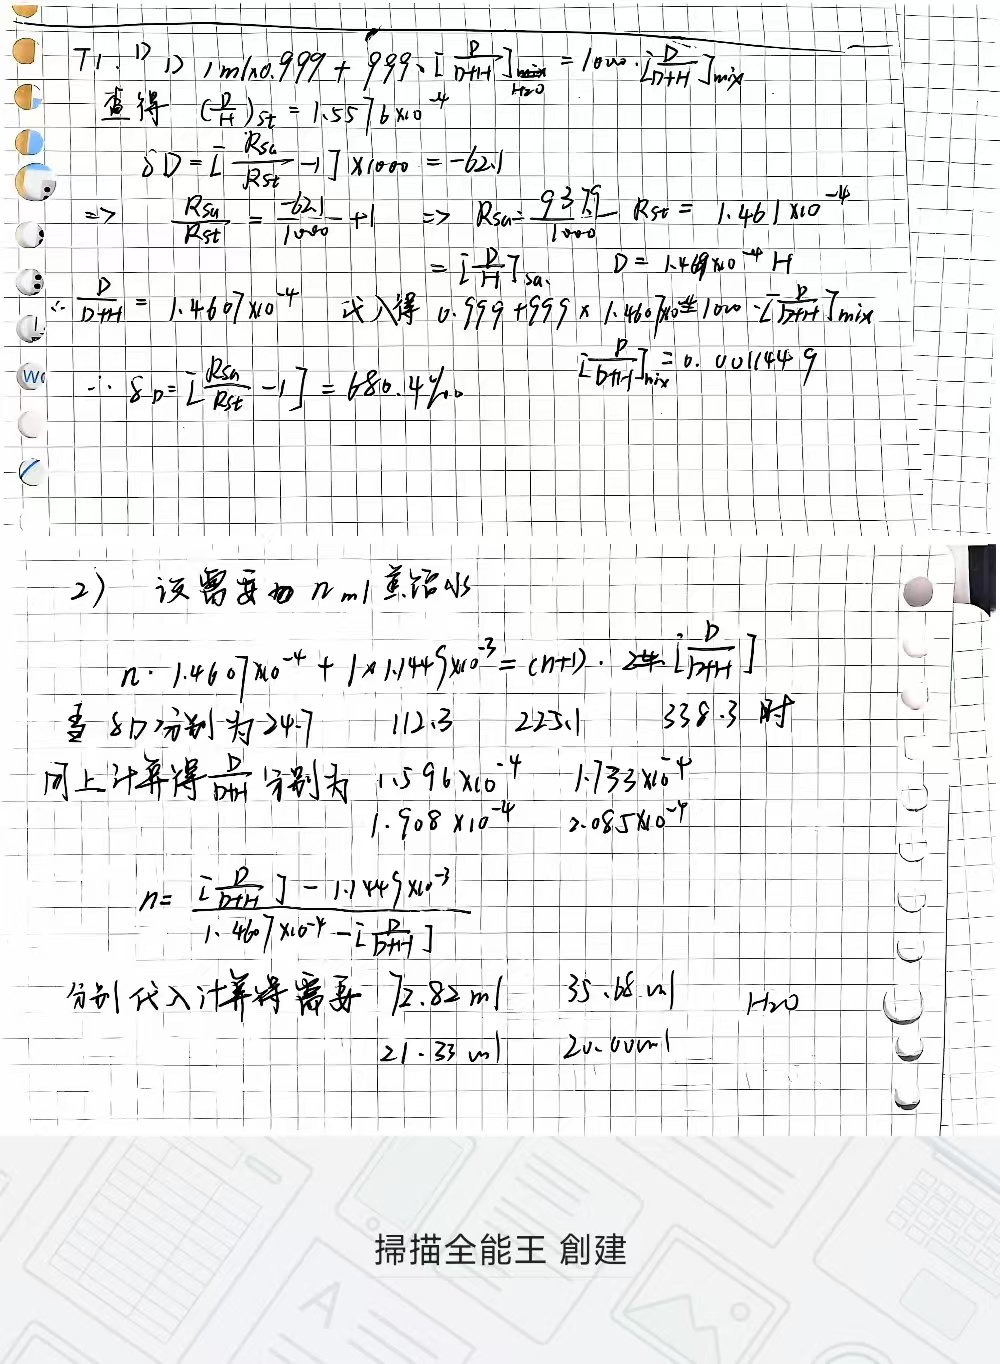 T1. 1) 1) 1ml×0.999 + 999·[D/(D+H)]H2O = 1000·[D/(D+H)]mix
查得 (D/H)st = 1.5576×10⁻⁴
δD = [Rsa/Rst - 1]×1000 = -62.1
=> Rsa/Rst = -62.1/1000 + 1 => Rsa = 937.9/1000 Rst = 1.461×10⁻⁴
= [D/H]sa. D = 1.461×10⁻⁴ H
∴ D/(D+H) = 1.4607×10⁻⁴ 代入得 0.999+999×1.4607×10⁻⁴=1000·[D/(D+H)]mix
[D/(D+H)]mix = 0.0011449
∴ δD = [Rsa/Rst - 1] = 6810.4‰
2) 设需要加 n ml 蒸馏水
n·1.4607×10⁻⁴ + 1×1.1449×10⁻³ = (n+1)·[D/(D+H)]
查 δD分别为 24.7 112.3 225.1 338.3 时
同上计算得 D/(D+H) 分别为 1.596×10⁻⁴ 1.733×10⁻⁴
1.908×10⁻⁴ 2.085×10⁻⁴
n = ([D/(D+H)] - 1.1449×10⁻³)/(1.4607×10⁻⁴ - [D/(D+H)])
分别代入计算得需要 72.82 ml 35.68 ml H2O
21.33 ml 20.00ml
掃描全能王 創建